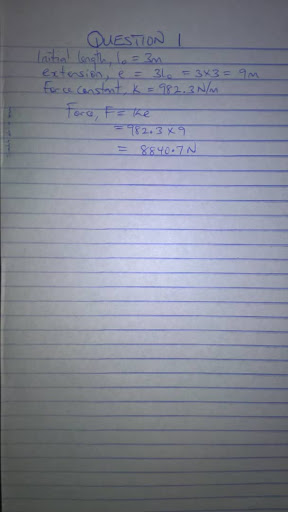 QUESTION 1
Initial length, l₀ = 3m
extension, e = 3l₀ = 3×3 = 9m
Force constant, K = 982.3N/m
Force, F = Ke
= 982.3 × 9
= 8840.7N